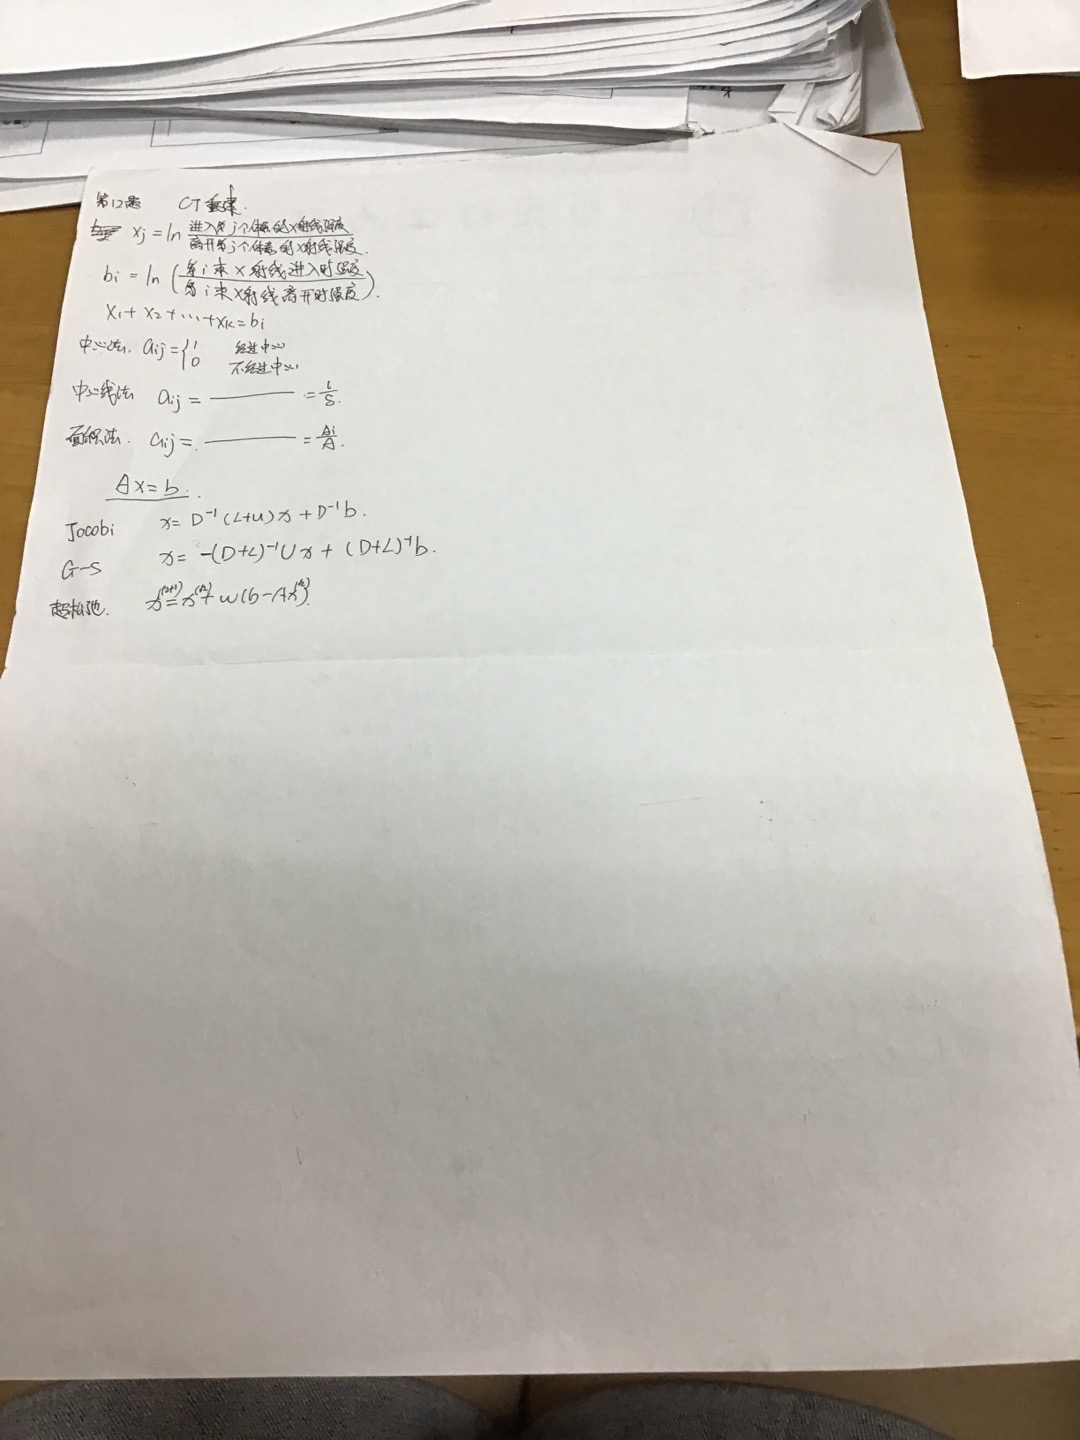 第12题 CT重建.
xj = ln 进入第j个体素的X射线强度 / 离开第j个体素的X射线强度.
bi = ln (第i束X射线进入时强度 / 第i束X射线离开时强度).
x1 + x2 + ⋯ + xk = bi
中心法. aij = { 1 经过中心
0 不经过中心
中心线法 aij = ——— = l/S.
面积法. aij = ——— = Ai/A.
Ax = b.
Jocobi x = D⁻¹(L+U)x + D⁻¹b.
G-S x = -(D+L)⁻¹Ux + (D+L)⁻¹b.
超松弛. x⁽ᵏ⁺¹⁾ = x⁽ᵏ⁾ + w(b-Ax⁽ᵏ⁾).